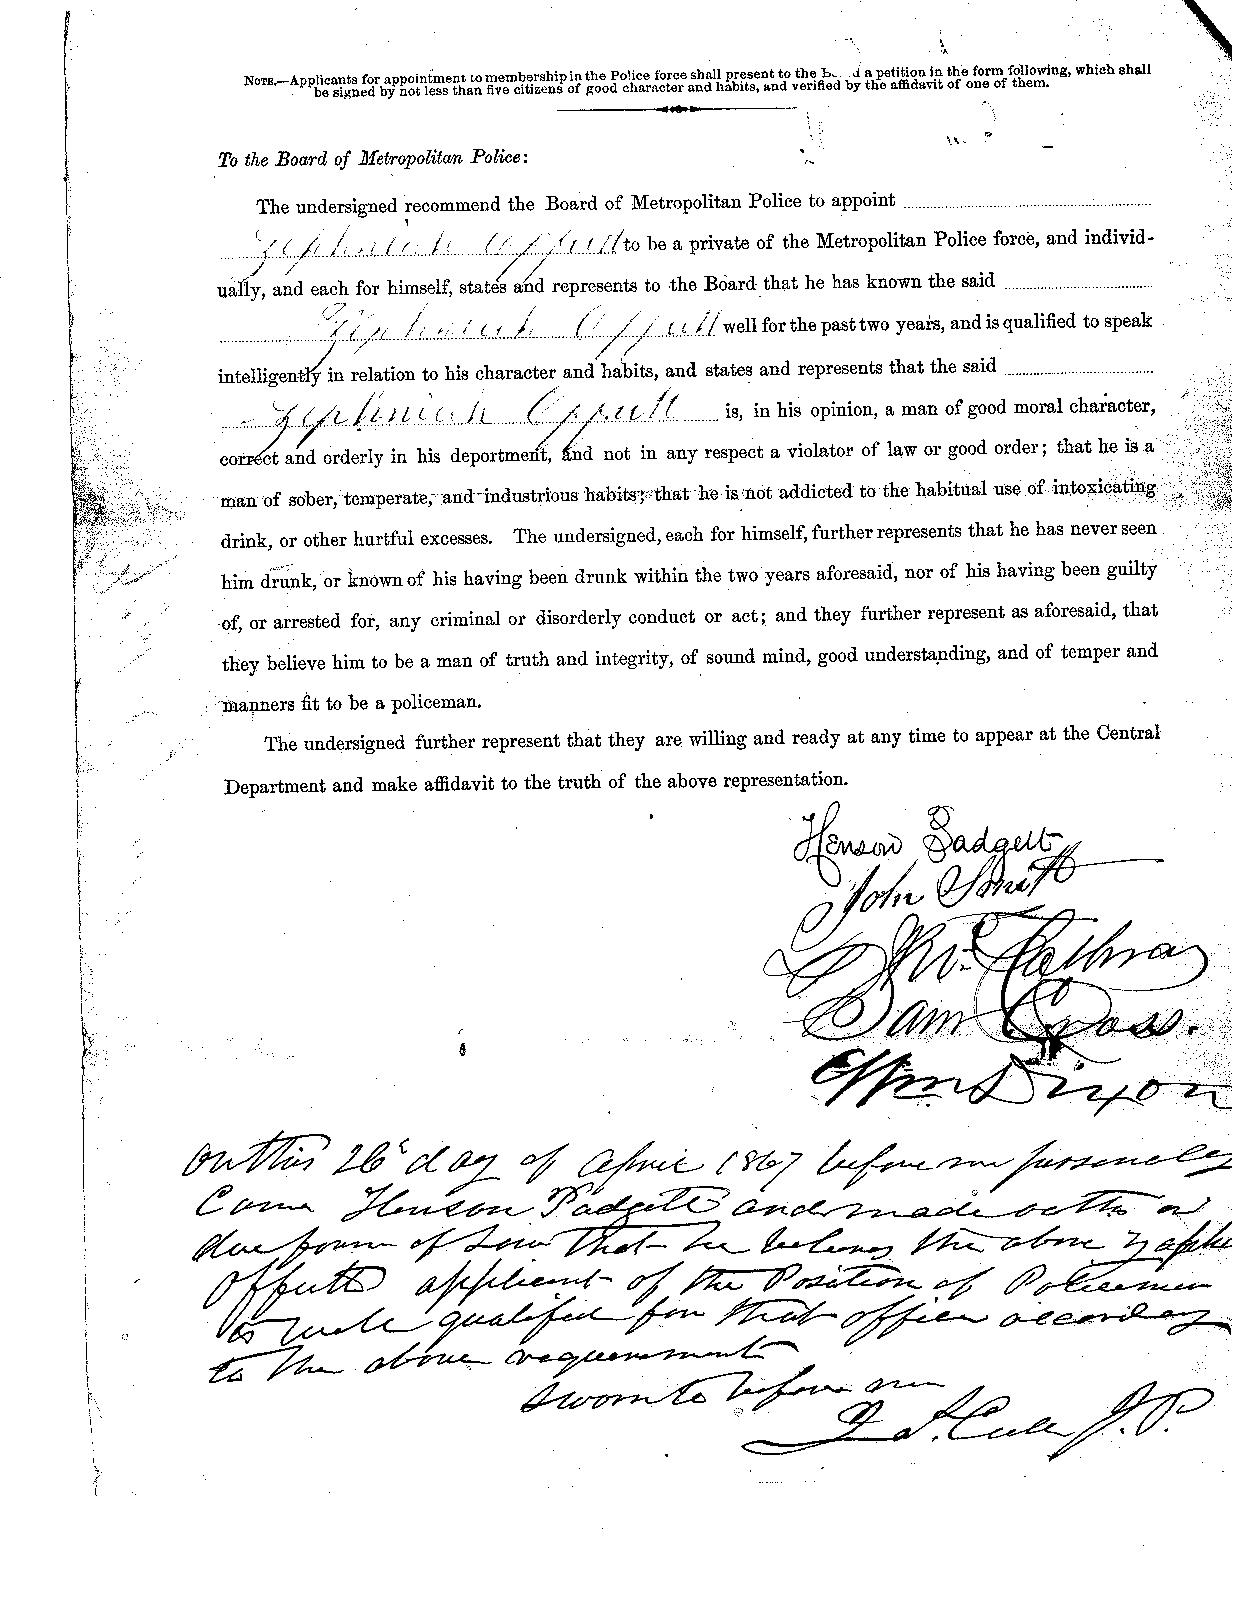 NOTE.—Applicants for appointment to membership in the Police force shall present to the a petition in the form following, which shall
be signed by not less than five citizens of good character and habits, and verified by the affidavit of one of them.
To the Board of Metropolitan Police:
The undersigned recommend the Board of Metropolitan Police to appoint
Zephniah Offutt to be a private of the Metropolitan Police force, and individ-
ually, and each for himself, states and represents to the Board that he has known the said
Zephniah Offutt well for the past two years, and is qualified to speak
intelligently in relation to his character and habits, and states and represents that the said
Zephniah Offutt is, in his opinion, a man of good moral character,
correct and orderly in his deportment, and not in any respect a violator of law or good order; that he is a
man of sober, temperate, and industrious habits; that he is not addicted to the habitual use of intoxicating
drink, or other hurtful excesses. The undersigned, each for himself, further represents that he has never seen
him drunk, or known of his having been drunk within the two years aforesaid, nor of his having been guilty
of, or arrested for, any criminal or disorderly conduct or act; and they further represent as aforesaid, that
they believe him to be a man of truth and integrity, of sound mind, good understanding, and of temper and
manners fit to be a policeman.
The undersigned further represent that they are willing and ready at any time to appear at the Central
Department and make affidavit to the truth of the above representation.
Henson Padgett
John Smith
Cathray
Sam Cross.
Wm Dixon
On this 26 day of April 1867 before me personaley
Came Henson Padgett and made oath in
due form of Law that he beleives the above
Offutt applicant of the Position of Policeman
is well qualified for that office according
to the above requierement
sworn to before me
J.P.